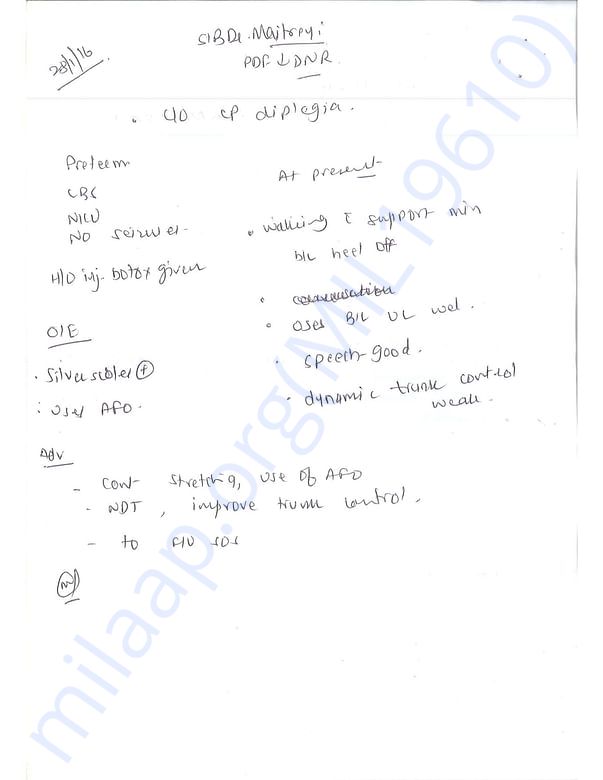 28/1/16
S/B Dr. Maitreyi
PDF ↓ DNR
. C/O CP diplegia.
Preterm
LBS
NICU
NO seizures.
H/O inj. botox given
O/E
. Silverskiold +
: Uses AFO.
At present
. walking c̄ support min
b/L heel off
. communication
. Uses B/L UL wel.
. speech-good.
. dynamic trunk control
weak.
Adv
- Cont- stretching, use of AFO
- NDT, improve trunk control.
- to F/U SOS
milaap.org(MIL19610)